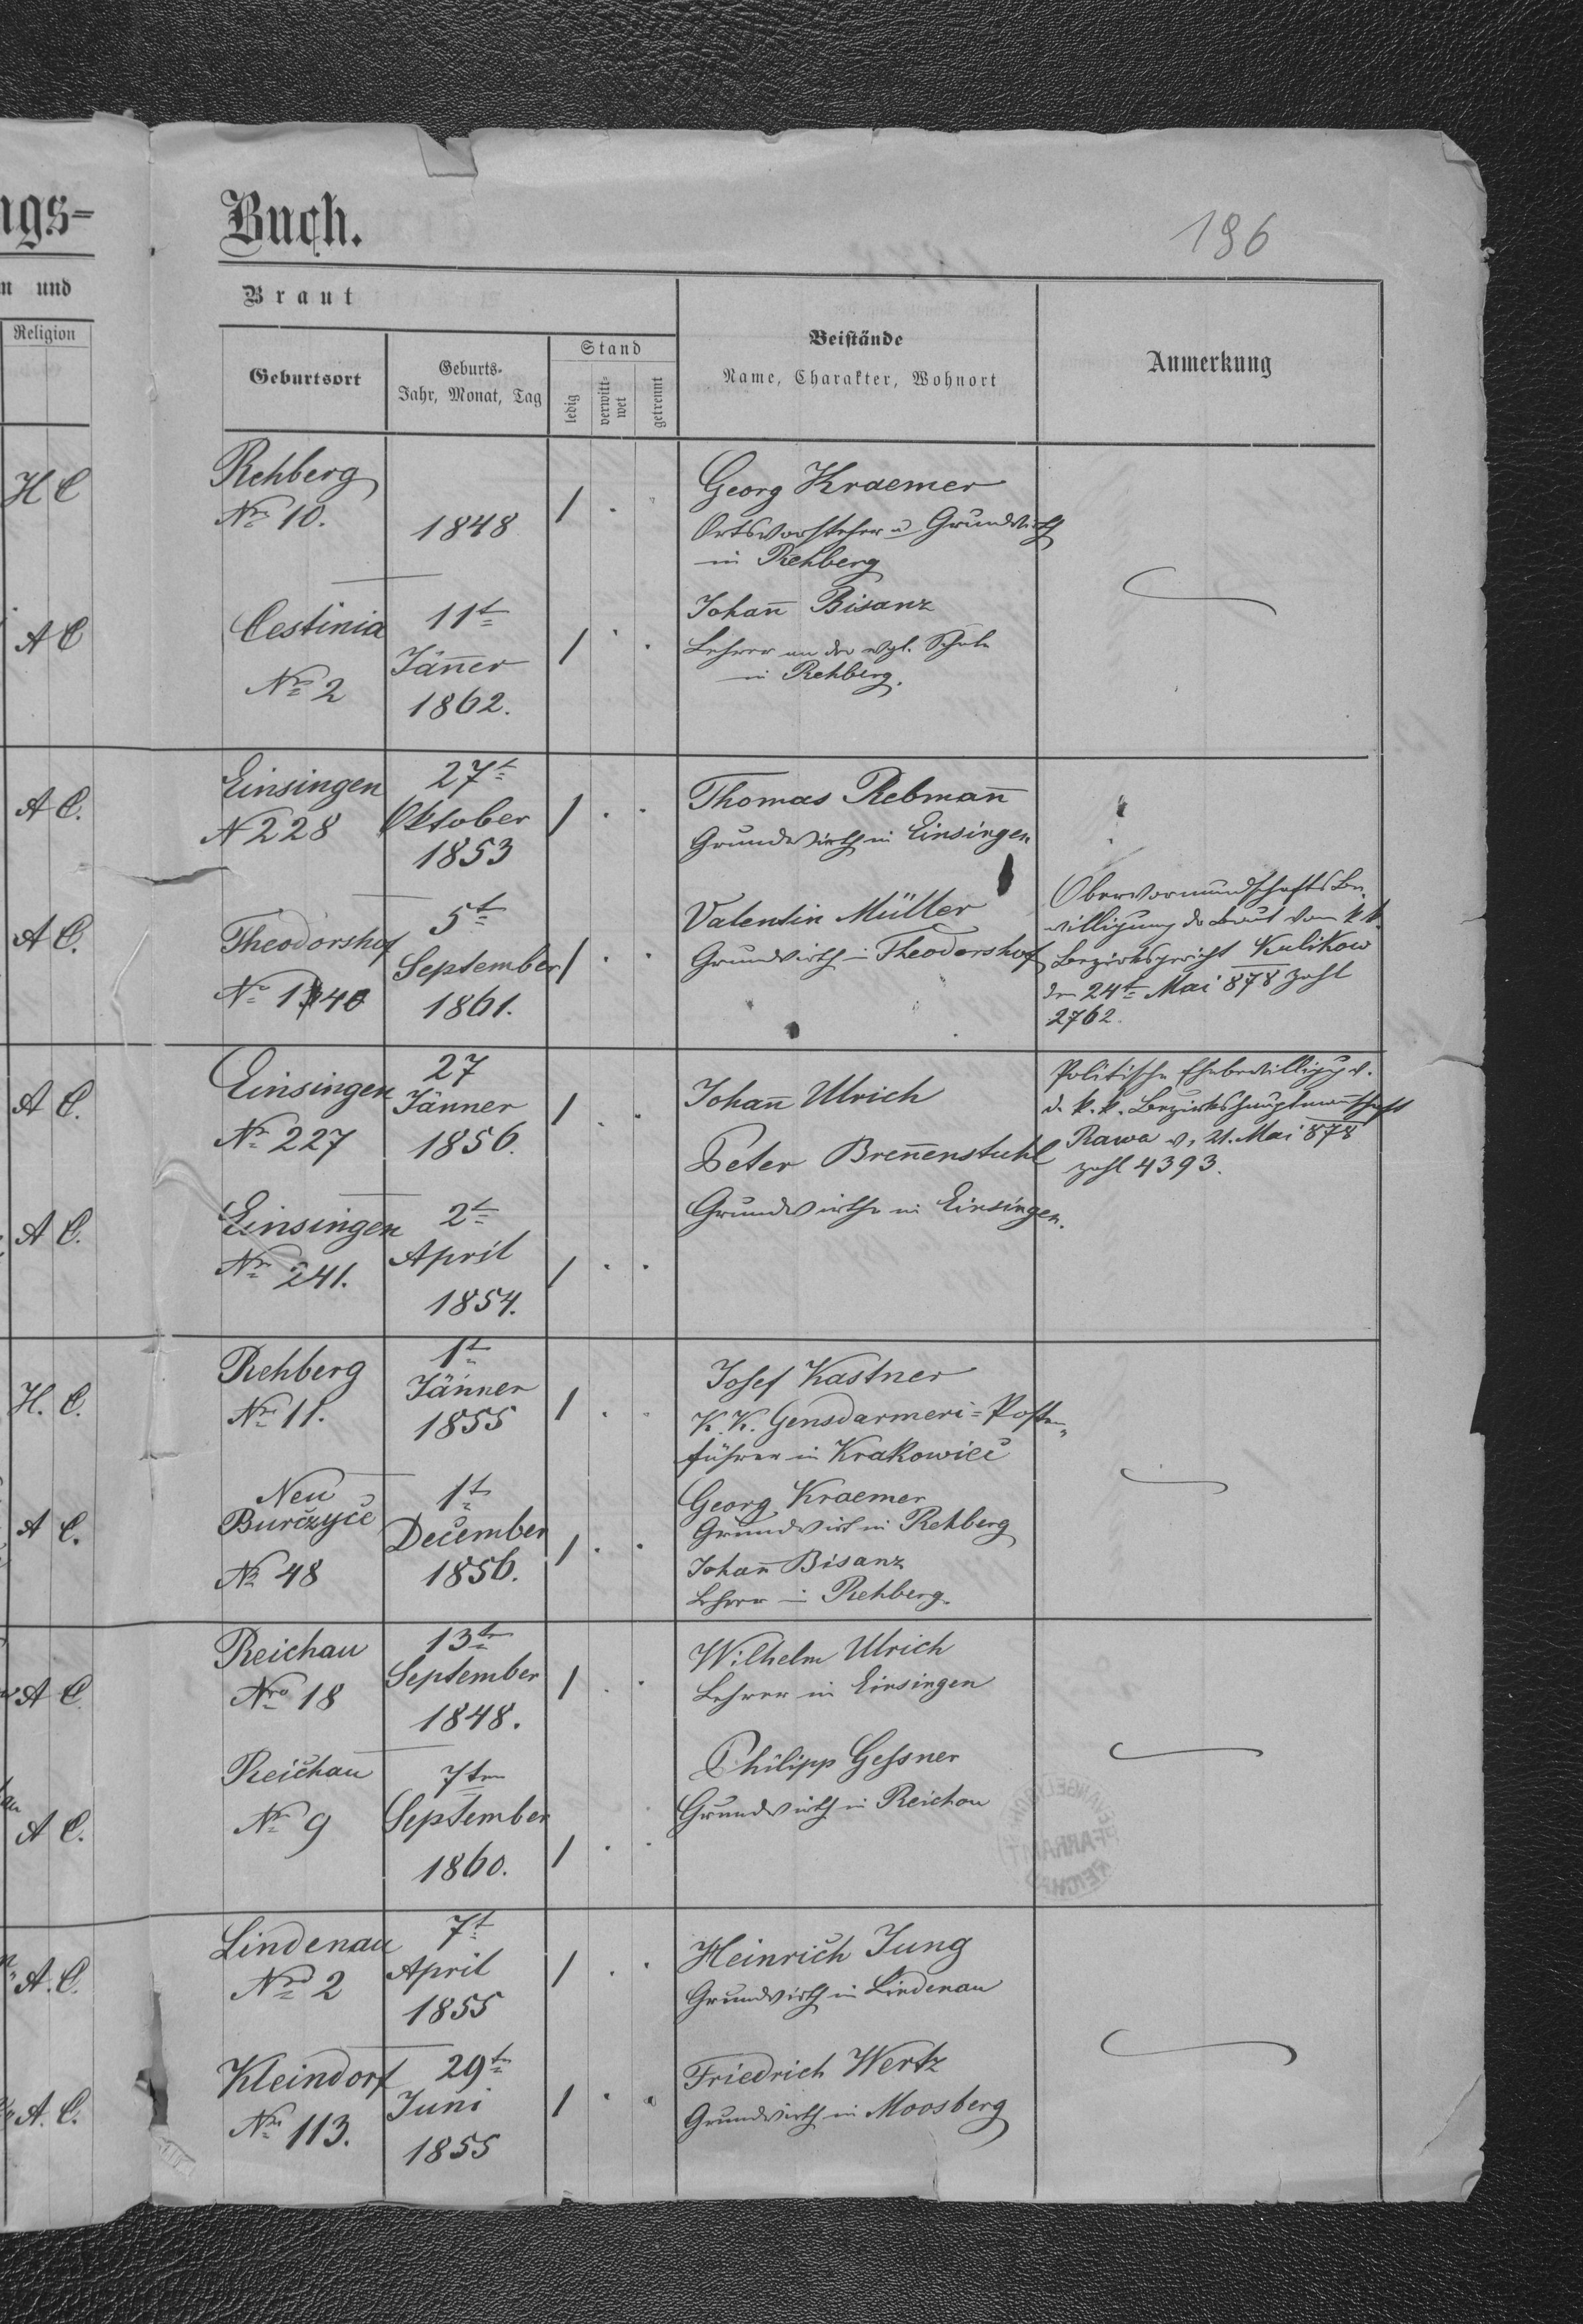 ngs=
Buch.
196
n und
Religion
Braut
Geburtsort
Geburts-
Jahr, Monat, Tag
Stand
ledig
verwitt-
wet
getrennt
Beistände
Name, Charakter, Wohnort
Anmerkung
H C
Rehberg
Nr 10.
1848
1 .
Georg Kraemer
Ortsvorsteher u Grundwirth
in Rehberg
A C
Cestinia
Nr 2
11t
Jäner
1862.
1 . .
Johan Bisanz
Lehrer an der evgl. Schule
in Rehberg.
A C.
Einsingen
N 228
27t
Oktober
1853
1 . .
Thomas Rebman
Grundwirth in Einsingen
A C.
Theodorshof
No 140
5t
September
1861.
1 . .
Valentin Müller
Grundwirth in Theodorshof
Obervormundschaftsbe-
willigung de Braut vom k. k.
Bezirksgericht Kulikow
den 24t Mai 878 Zahl
2762.
A C.
Einsingen
Nr 227
27
Jänner
1856.
1 . .
Johan Ulrich
Peter Brenenstuhl
Grundwirthe in Einsingen.
Politische Ehebewilligug v.
d. k. k. Bezirkshauptmanschaft
Rawa v. 21. Mai 878
Zahl 4393.
A C.
Einsingen
Nr 241.
2t
April
1854.
1 . .
H. C.
Rehberg
Nr 11.
1t
Jänner
1855
1 . .
Josef Kastner
K. K. Gensdarmeri=Posten
führer in Krakowiec
A C.
Neu
Burczyce
Nr 48
1t
December
1856.
1 . .
Georg Kraemer
Grundwirt in Rehberg
Johan Bisanz
Lehrer in Rehberg.
A C
Reichau
Nro 18
13t
September
1848.
1 . .
Wilhelm Ulrich
Lehrer in Einsingen
A C.
Reichau
Nr 9
7ten
September
1860.
1 . .
Philipp Gessner
Grundwirth in Reichau
A. C.
Lindenau
Nro 2
7t
April
1855
1 . .
Heinrich Jung
Grundwirth in Lindenau
A. C.
Kleindorf
Nr 113.
29t
Juni
1855
1 . .
Friedrich Wertz
Grundwirth in Moosberg